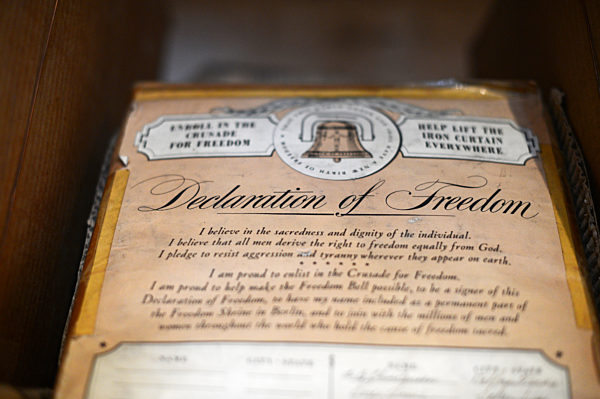 ENROLL IN THE
CRUSADE
FOR FREEDOM
HELP LIFT THE
IRON CURTAIN
EVERYWHERE
Declaration of Freedom
I believe in the sacredness and dignity of the individual.
I believe that all men derive the right to freedom equally from God.
I pledge to resist aggression and tyranny wherever they appear on earth.
I am proud to enlist in the Crusade for Freedom.
I am proud to help make the Freedom Bell possible, to be a signer of this
Declaration of Freedom, to have my name included as a permanent part of
the Freedom Shrine in Berlin, and to join with the millions of men and
women throughout the world who hold the cause of freedom sacred.